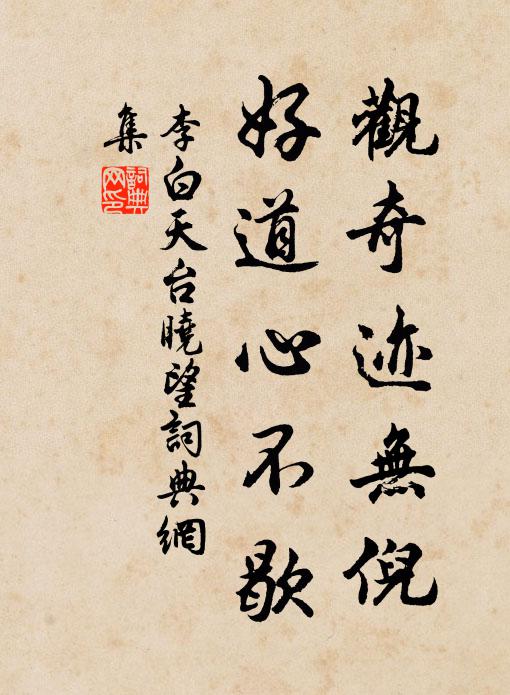 觀奇迹無倪
好道心不歇
李白天台曉望詞典網
集
詞典
网印